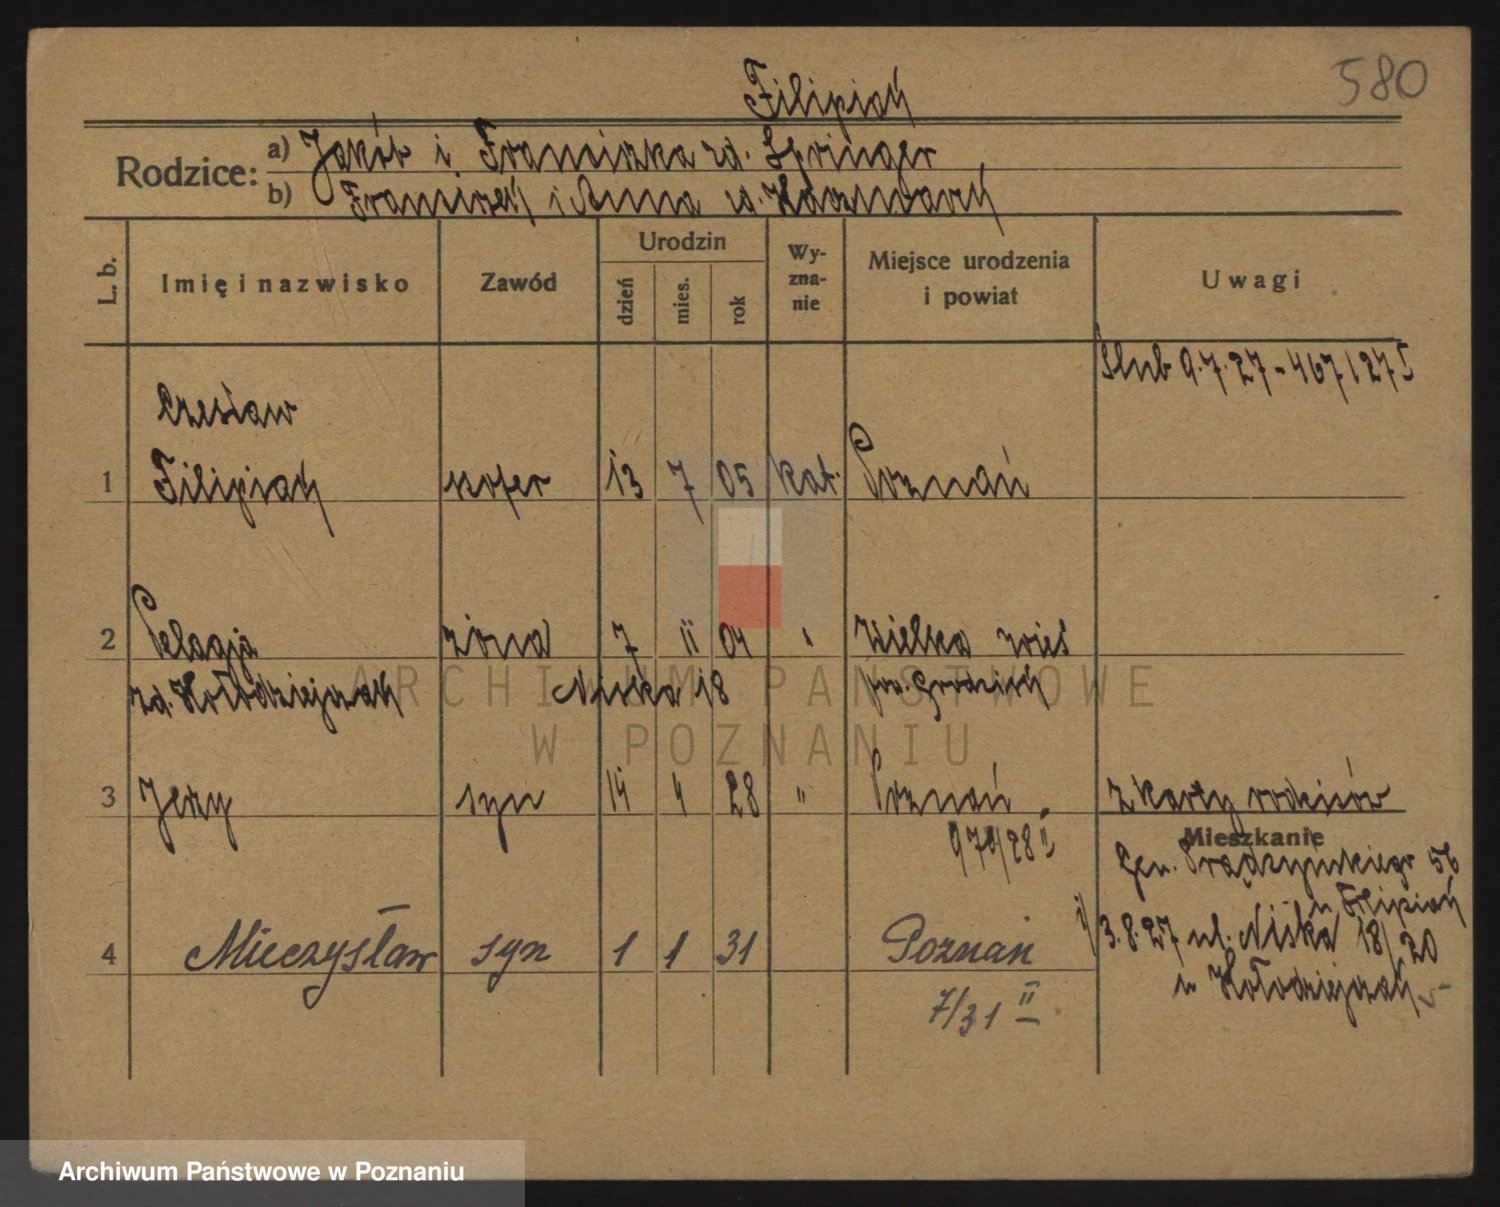 580
Filipiak
Rodzice:
a) Jakób i Franciszka zd. Springer
b) Franciszek i Anna zd. Kaczmarek
L. b.
Imię i nazwisko
Zawód
Urodzin
dzień
mies.
rok
Wy-
zna-
nie
Miejsce urodzenia
i powiat
Uwagi
Ślub 9.7.27 - 467/27 I
Czesław
1 Filipiak szofer 13 7 05 kat. Poznań
2 Pelagja żona 7 11 04 " Wielka wieś
zd. Kołodziejczak Niska 18 pow. Grodzisk
3 Jerzy syn 14 4 28 " Poznań z karty rodziców
970/28 II
Mieszkanie
Gen. Prądzyńskiego 56
u Filipiak
3.8.27 ul. Niska 18/20
u Kołodziejczak
4 Mieczysław syn 1 1 31 Poznań
7/31 II
ARCHIWUM PAŃSTWOWE
W POZNANIU
Archiwum Państwowe w Poznaniu